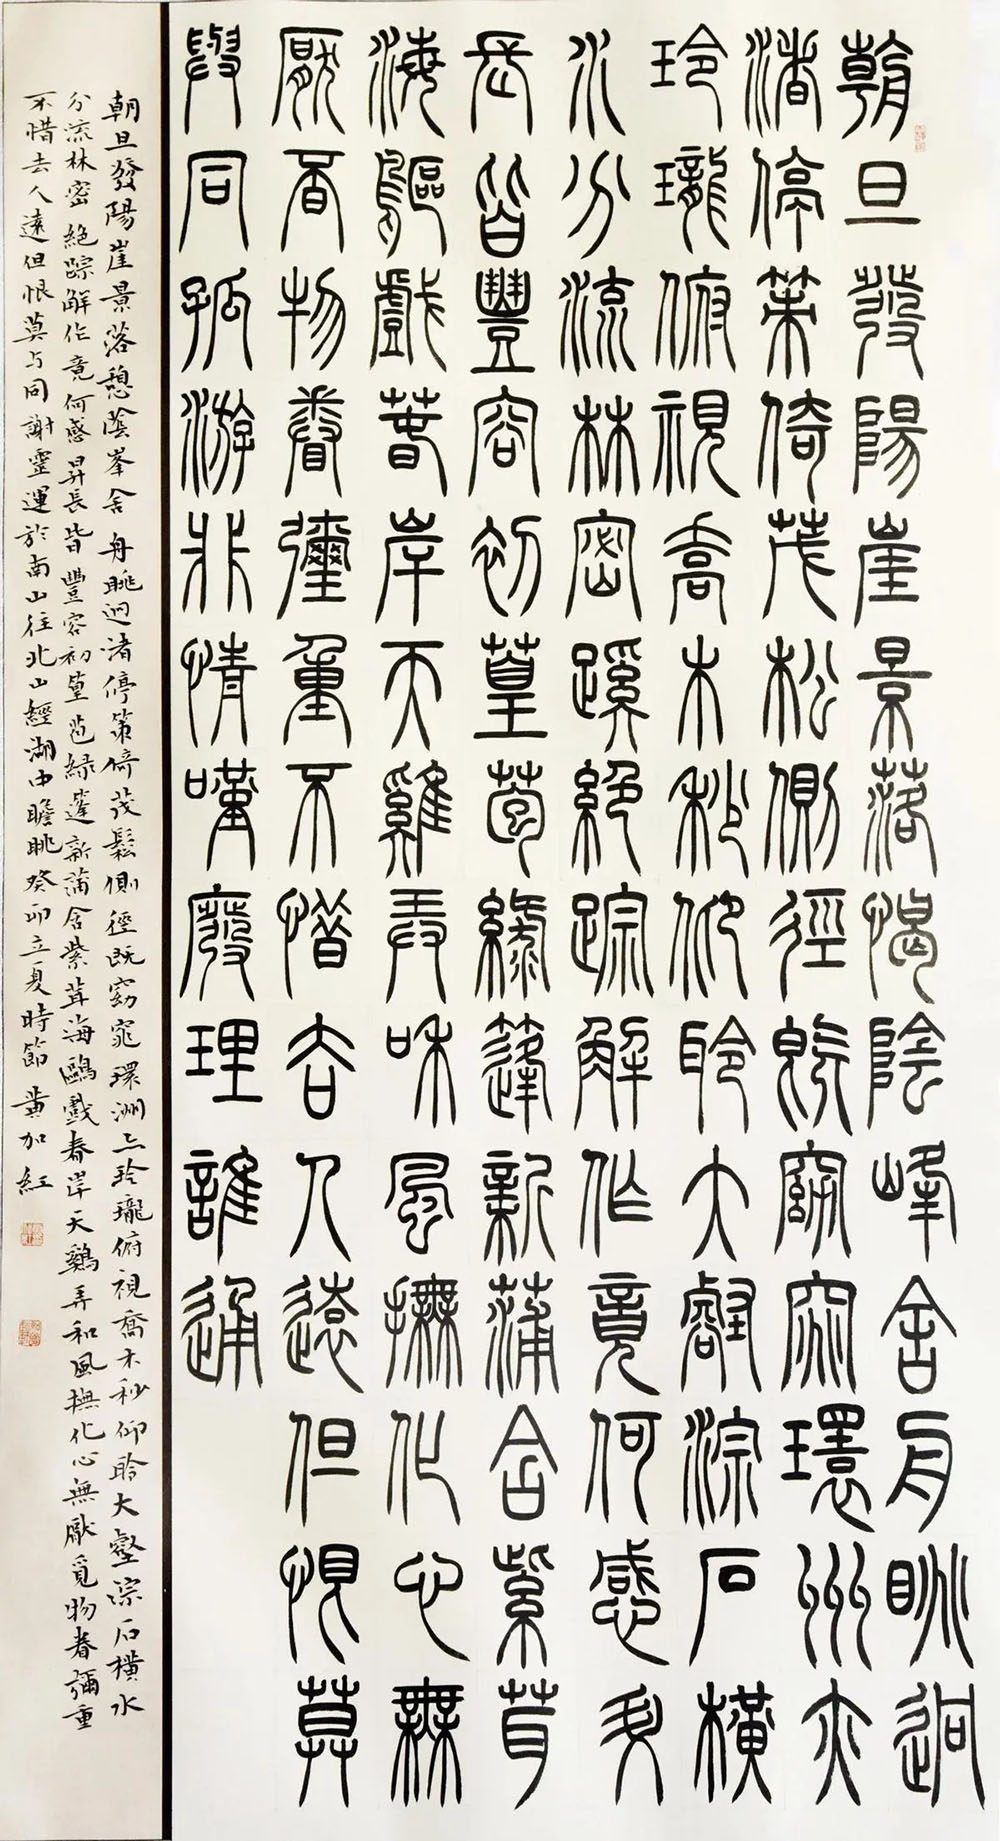 朝旦發陽崖景落憩陰峰舍舟眺迥
渚停策倚茂松側徑既窈窕環州亦
玲瓏俯視喬木秒仰聆大壑淙石橫
水分流林密蹊絕踪解作竟何感升
長皆豐容初篁苞綠篷新蒲含紫茸
海鷗戲春岸天雞弄和風撫化心無
厭覓物眷彌重不惜去人遠但恨莫
與同孤游非情嘆廢理誰通
朝旦發陽崖景落憩蔭峯舍舟眺迥渚停策倚茂鬆側徑既窈窕環洲亦玲瓏俯視喬木秒仰聆大壑淙石橫水
分流林密絕踪解作竟何感昇長皆豐容初篁苞緑蓬新蒲含紫茸海鷗戲春岸天鷄弄和風撫化心無厭覓物眷彌重
不惜去人遠但恨莫与同謝靈運於南山往北山經湖中瞻眺癸卯立夏時節黄加紅